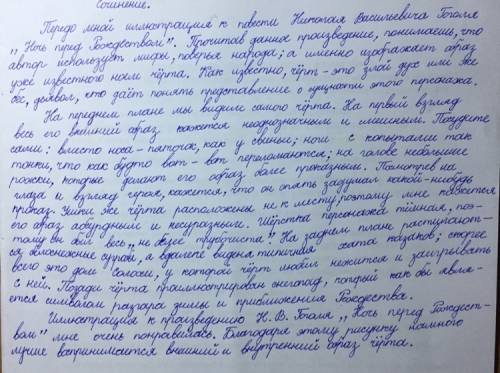 Сочинение.
Передо мной иллюстрация к повести Николая Васильевича Гоголя
„Ночь перед Рождеством". Прочитав данное произведение, понимаешь, что
автор использует мифы, поверья народа; а именно изображает образ
уже известного всем чёрта. Как известно, чёрт - это злой дух или же
бес, дьявол, что даёт понять представление о сущности этого персонажа.
На переднем плане мы видим самого чёрта. На первый взгляд
весь его внешний образ кажется неоднозначным и смешным. Посудите
сами: вместо носа - пятачок, как у свиньи; ноги с копытами так
тонки, что как будто вот-вот переломаются; на голове небольшие
рожки, которые делают его образ более проказным. Посмотрев на
глаза и взгляд героя, кажется, что он опять задумал какой-нибудь
проказ. Уши же чёрта расположены не к месту, поэтому мне кажется
его образ абсурдным и несуразным. Шёрстка персонажа тёмная, поэ-
тому он был весь „не белее трубочиста". На заднем плане расстилают-
ся белоснежные сугробы, а вдалеке видна типичная хата казаков; скорее
всего это дом Солохи, у которой чёрт любил нежится и заигрывать
с ней. Позади чёрта проиллюстрирован снегопад, который как бы явля-
ется символом разгара зимы и приближения Рождества.
Иллюстрация к произведению Н. В. Гоголя „Ночь перед Рождест-
вом" мне очень понравилась. Благодаря этому рисунку намного
лучше воспринимается внешний и внутренний образ чёрта.